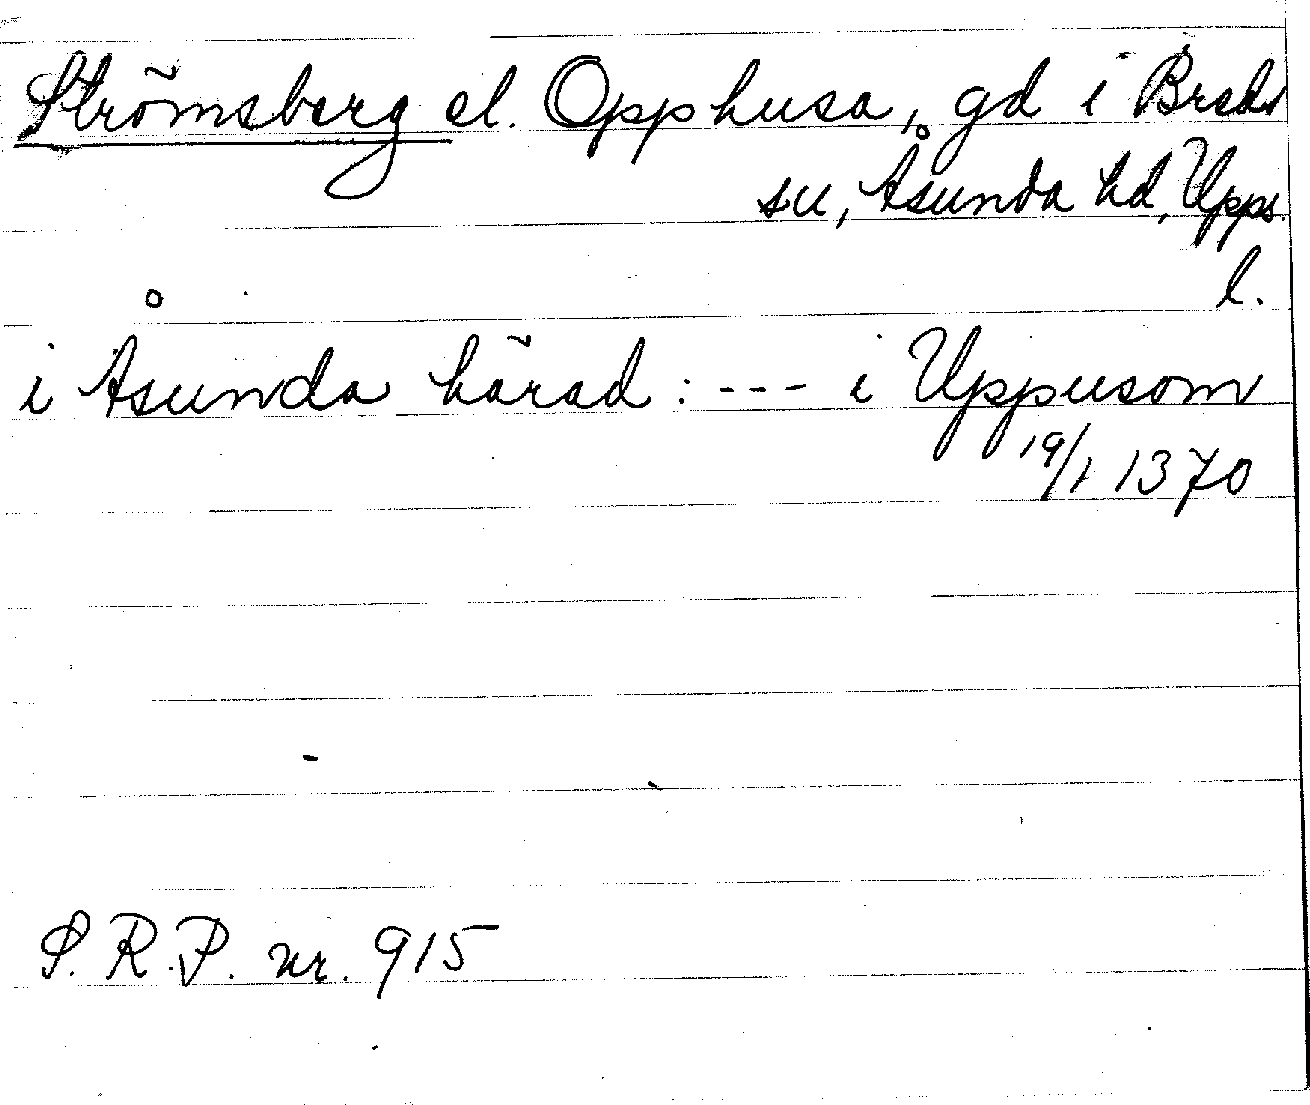 Strömsberg el. Opphusa, gd i Breds
sn, Åsunda hd, Upps.
l.
i Åsunda härad: --- i Uppusom
19/1 1370
S.R.P. nr. 915